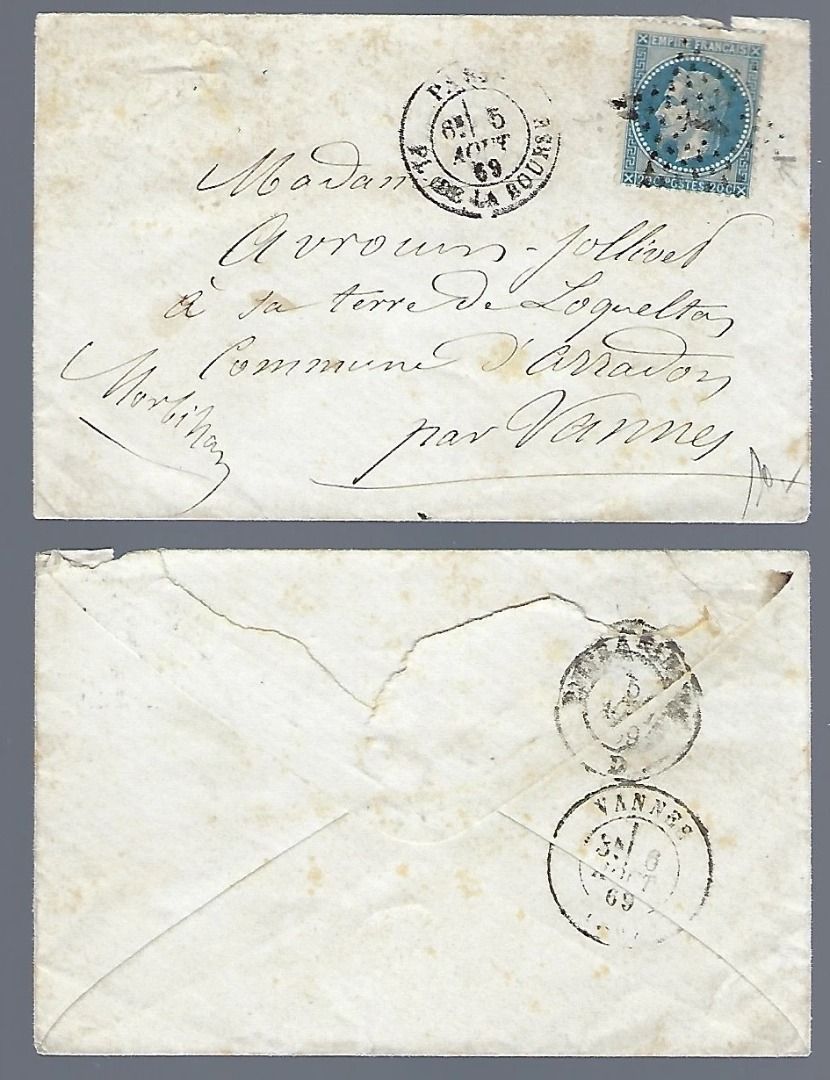 EMPIRE FRANÇAIS
20 C POSTES 20 C
PARIS
6E 5
AOUT
69
PL. DE LA BOURSE
Madame
Avrouin-Jollivet
à sa terre de Loqueltas
Commune d'Arradon
par Vannes
Morbihan
5
69
VANNES
6
AOUT
69